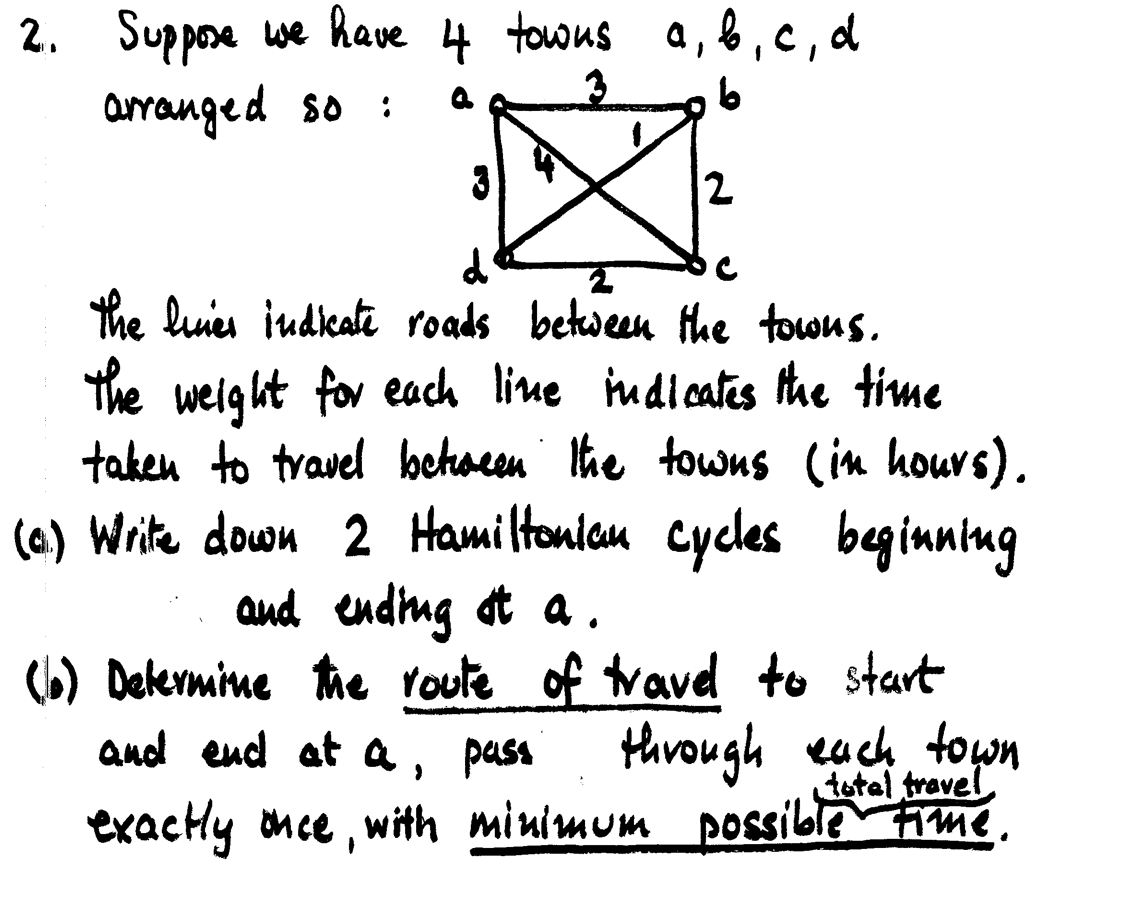 2. Suppose we have 4 towns a, b, c, d
arranged so :
a 3 b
4 1
3 2
d 2 c
The lines indicate roads between the towns.
The weight for each line indicates the time
taken to travel between the towns (in hours).
(a) Write down 2 Hamiltonian cycles beginning
and ending at a.
(b) Determine the route of travel to start
and end at a, pass through each town
total travel
exactly once, with minimum possible time.